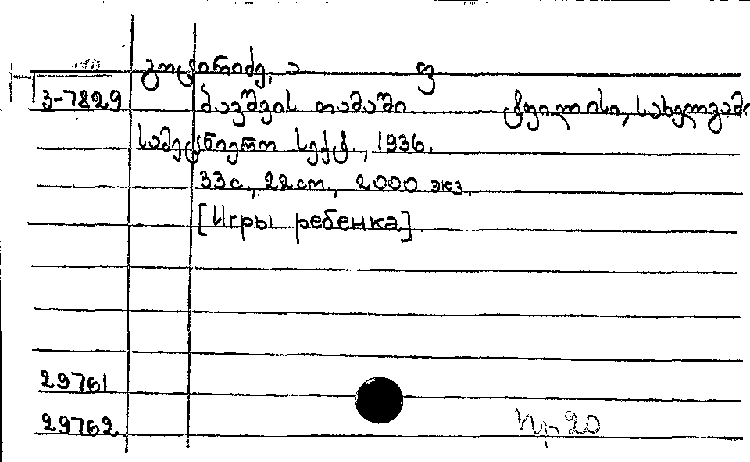 გოცირიძე, ა
3-7829 ბავშვის თამაში ტფილისი, სახელგამი
სამეცნიერო სექტ., 1936.
33с., 22см, 2000 экз.
[Игры ребенка]
29761
29762